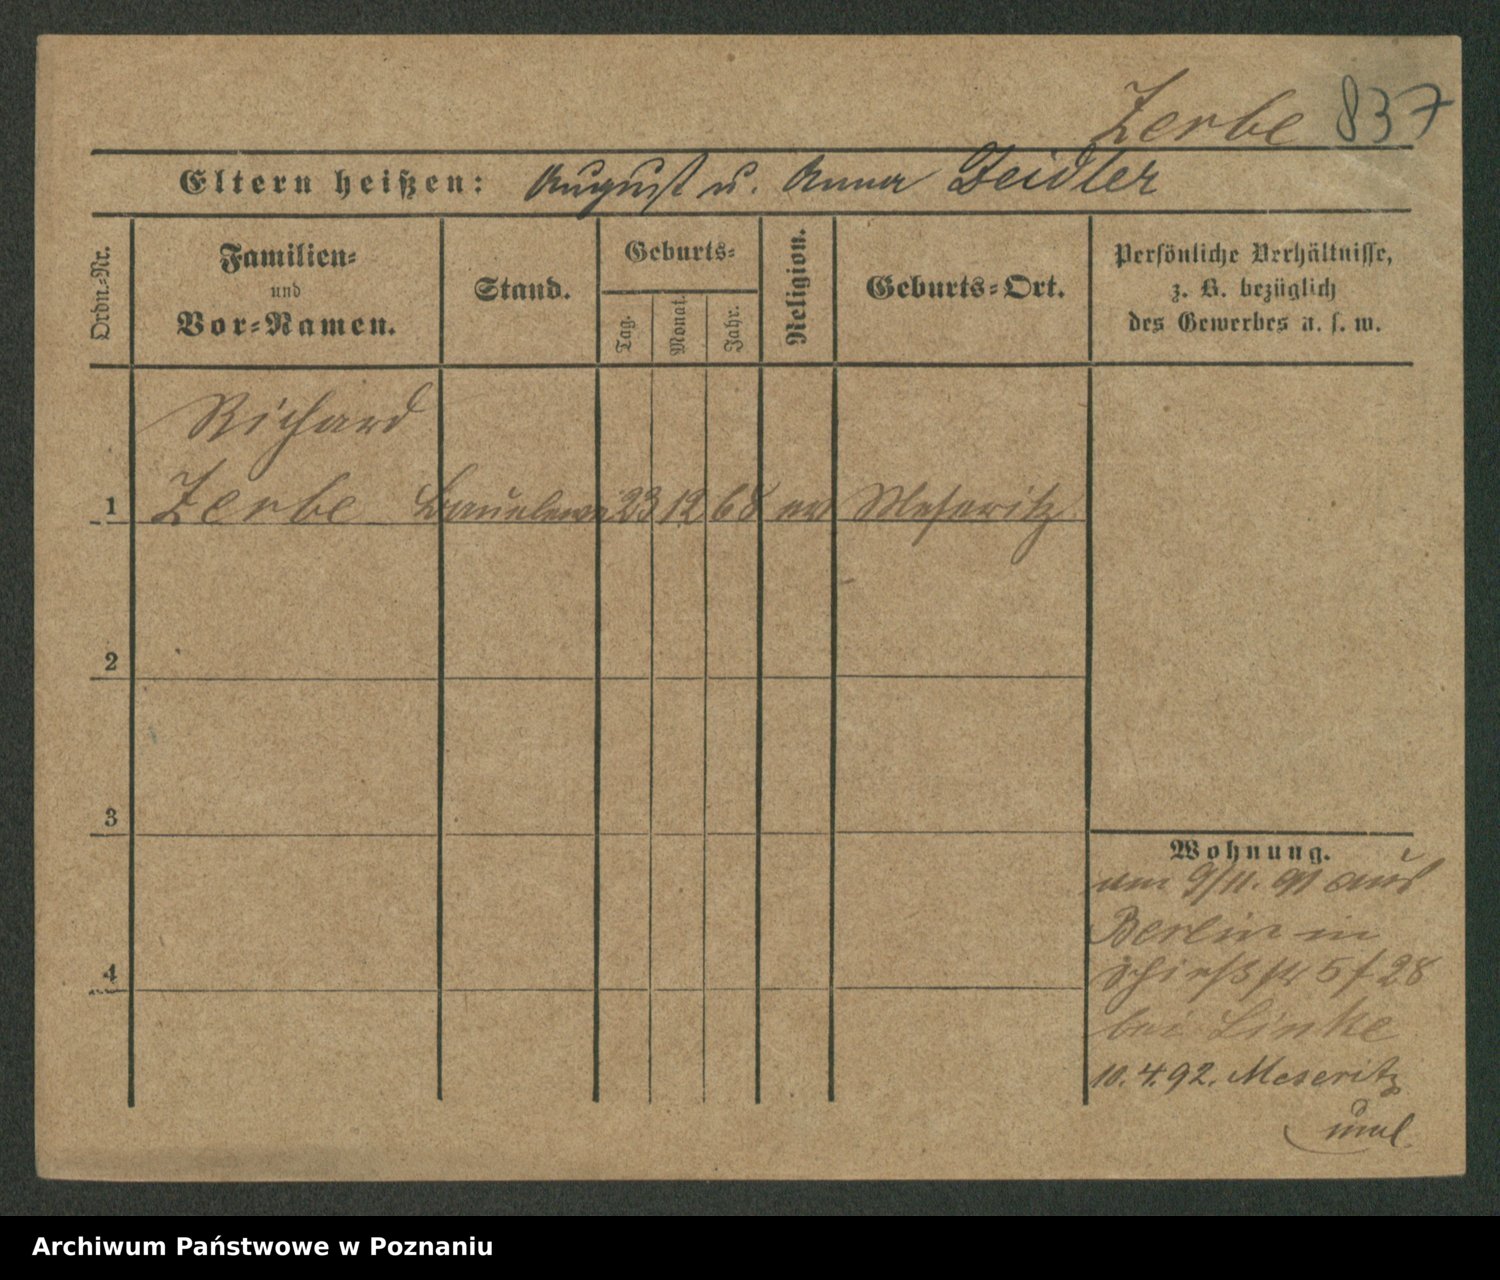 Zerbe 837
Eltern heißen: August u. Anna Zeidler
Ordn.-Nr.
Familien-
und
Vor-Namen.
Stand.
Geburts-
Tag.
Monat.
Jahr.
Religion.
Geburts-Ort.
Persönliche Verhältnisse,
z. B. bezüglich
des Gewerbes u. s. w.
Richard
1 Zerbe 23 12 68 ev Meseritz
2
3
4
Wohnung.
am 9/11. 91 aus
Berlin in
5 f 28
bei Linke
10.4.92. Meseritz
Archiwum Państwowe w Poznaniu